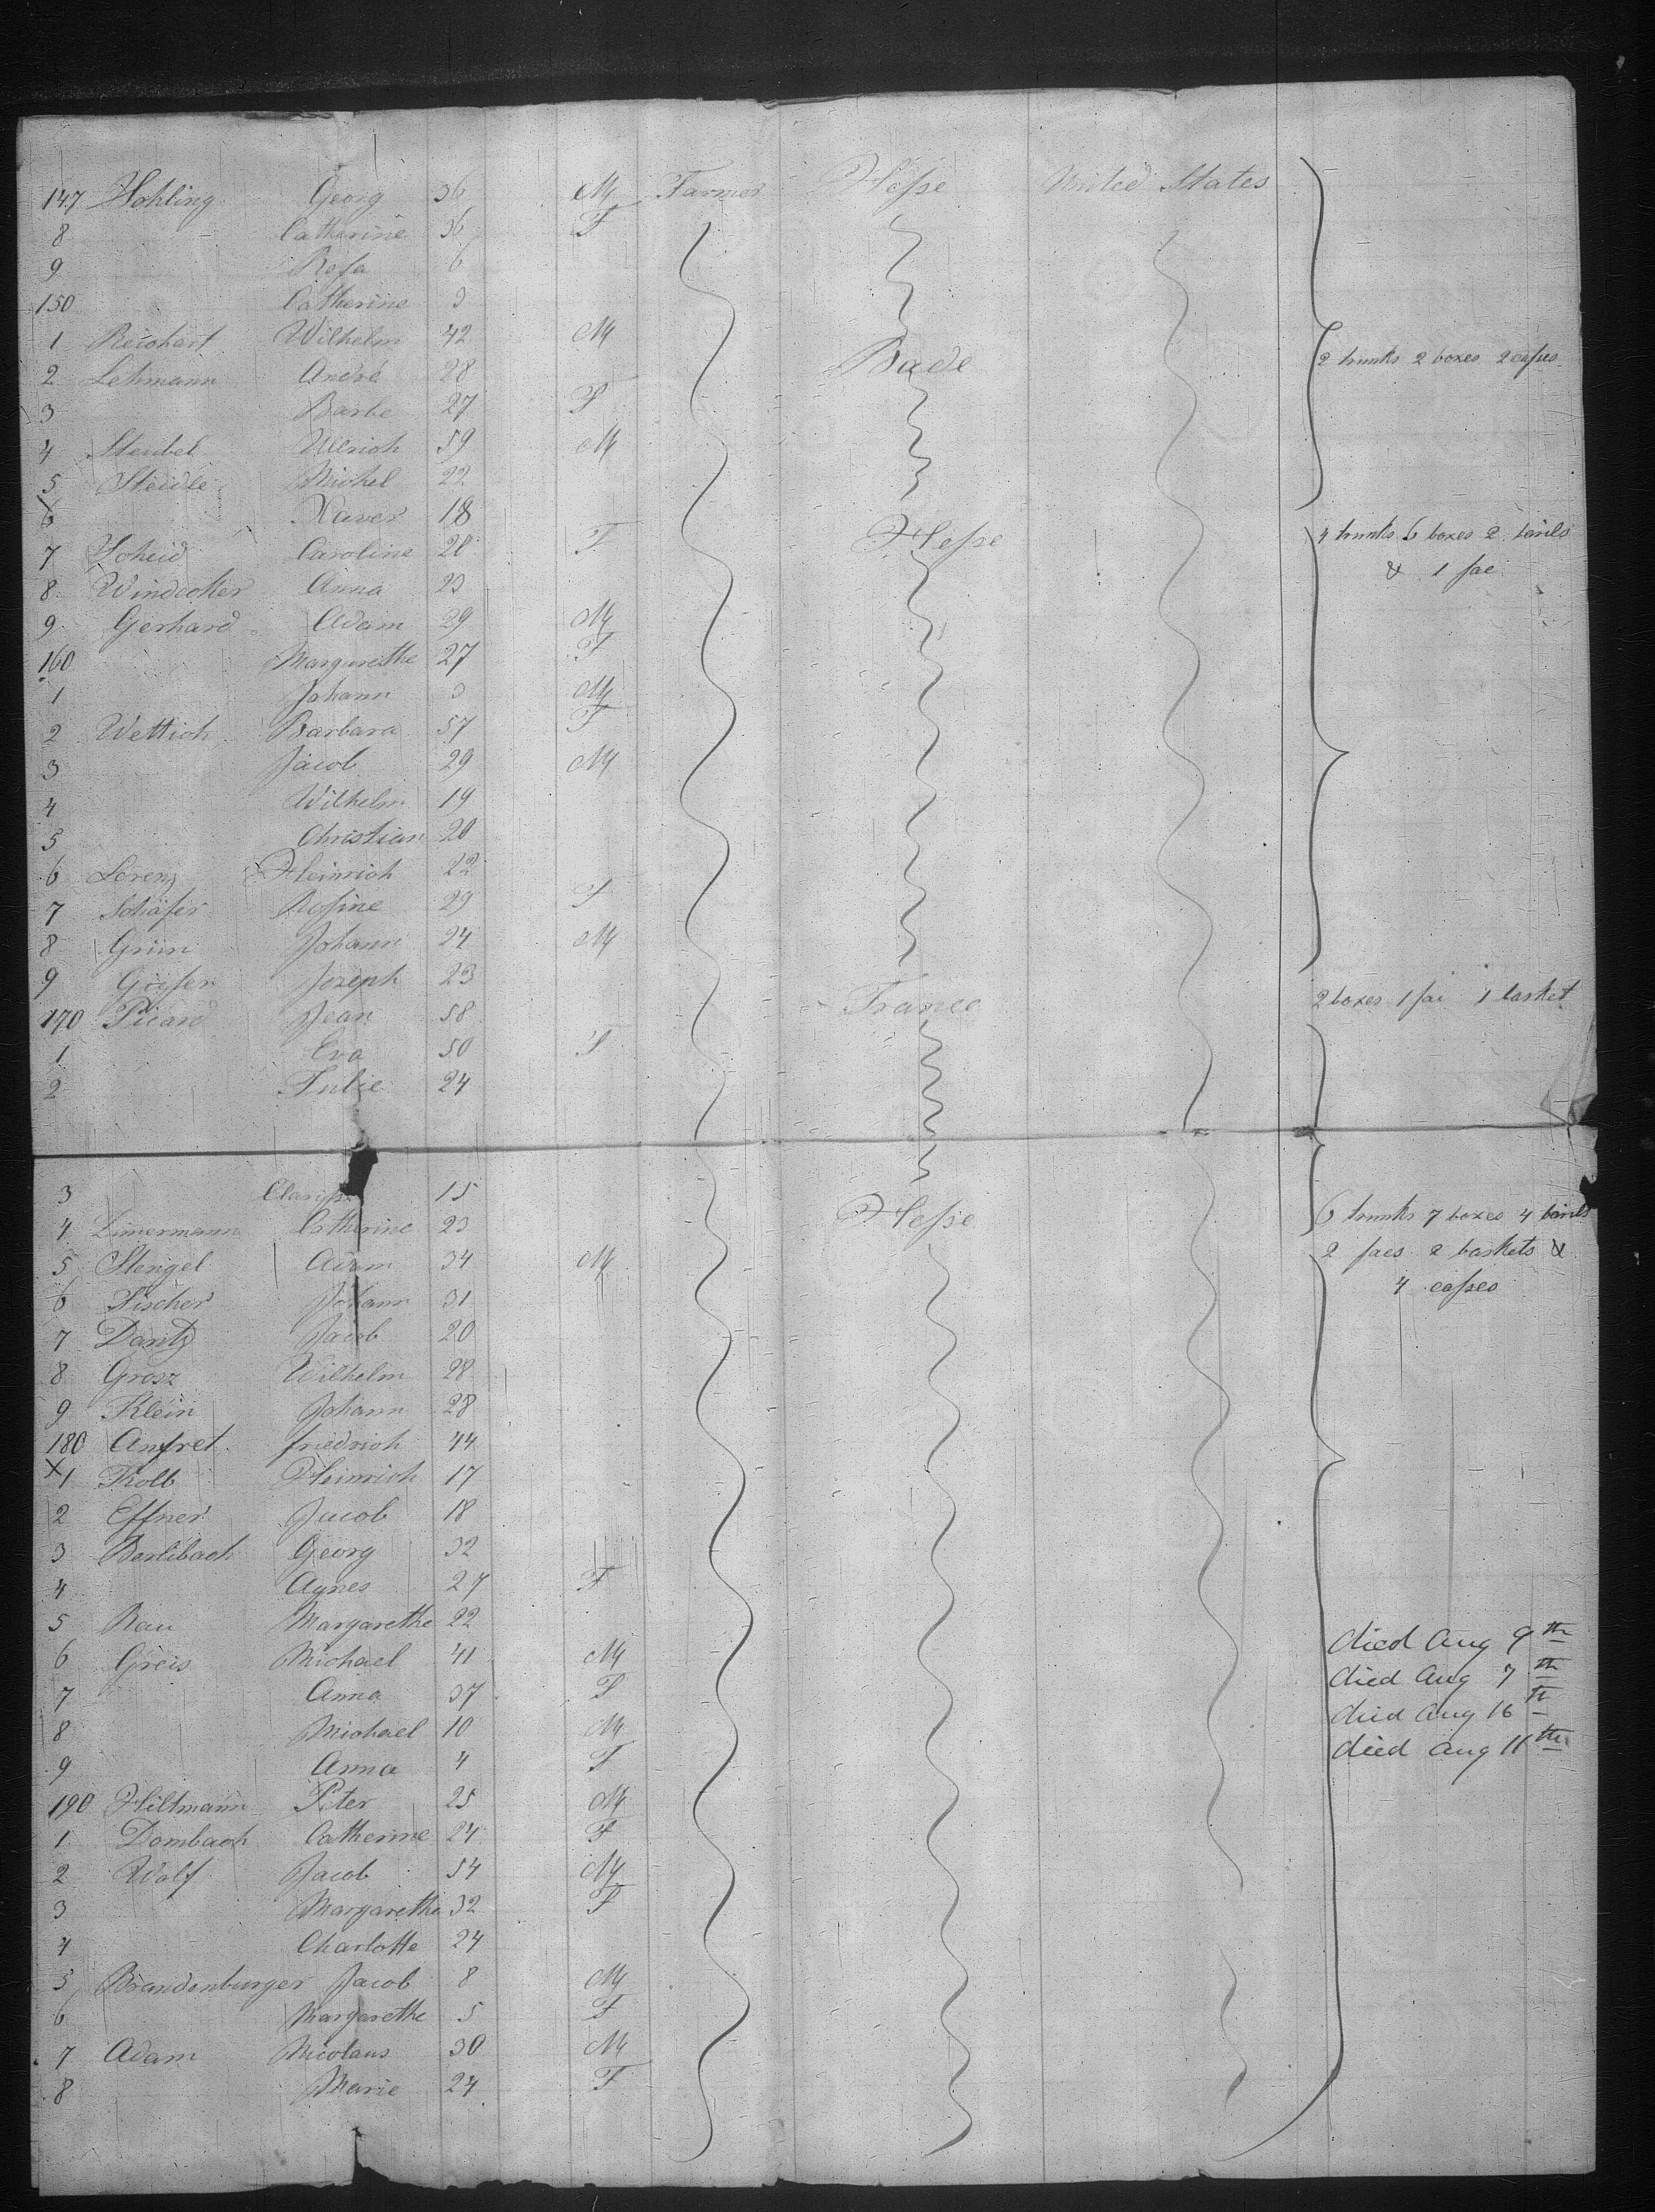 147 Hohling Georg 36 M Farmer Hesse United States
8 Catherine 36 F
9 Rosa 6
150 Catherine 3
1 Reichart Wilhelm 42 M
2 Lehmann André 28 Bade 2 trunks 2 boxes 2 casses
3 Barbe 27 F
4 Steubel Ullrich 59 M
5 Steidle Michel 22
6 Xaver 18
7 Scheid Caroline 28 F Hesse 4 trunks 6 boxes 2 barils
8 Anna 23 & 1 sac
9 Gerhard Adam 29 M
160 Margarethe 27 F
1 Johann 3 M
2 Wettich Barbara 57 F
3 Jacob 29 M
4 Wilhelm 19
5 Christian 20
6 Lorenz Heinrich 22
7 Schäfer Rosine 29 F
8 Grün Johann 24 M
9 Joseph 23
170 Picard Jean 58 France 2 boxes 1 sac 1 basket
1 Eva 50 F
2 Julie 24
3 15
4 Zimermann Catherine 23 Hesse 6 trunks 7 boxes 4 barils
5 Stengel Adam 34 M 2 sacs 2 baskets &
6 Fischer Johann 31 4 casses
7 Dantz Jacob 20
8 Grosz Wilhelm 28
9 Klein Johann 28
180 friedrich 44
X 1 Kolb Heinrich 17
2 Effner Jacob 18
3 Berlibach Georg 32
4 Agnes 27 F
5 Rau Margarethe 22
6 Greis Michael 41 M died Aug 9th
7 Anna 37 F died Aug 7th
8 Michael 10 M died Aug 16th
9 Anna 4 F died Aug 11th
190 Hiltmann Peter 25 M
1 Dombach Catherine 24 F
2 Wolf Jacob 54 M
3 Margarethe 32 F
4 Charlotte 24
5 Brandenburger Jacob 8 M
6 Margarethe 5 F
7 Adam Nicolaus 30 M
8 Marie 24 F